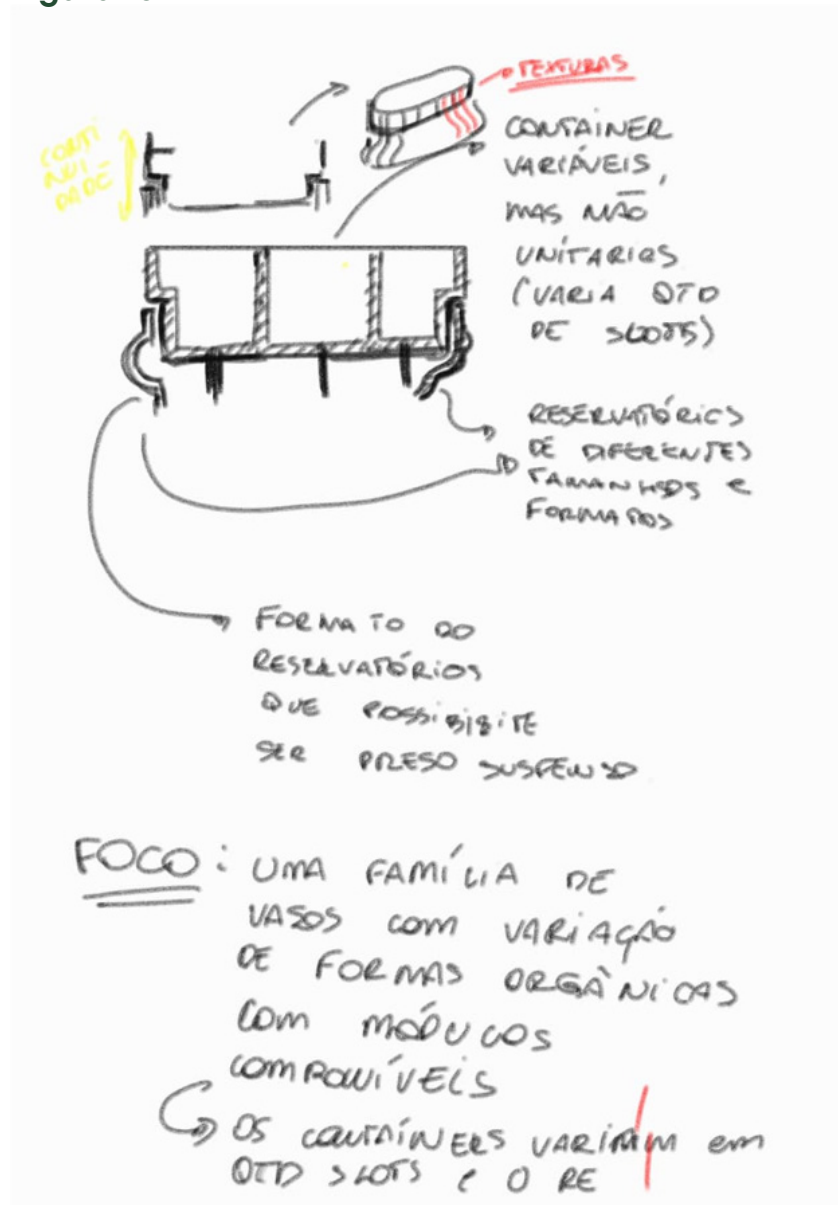 TEXTURAS
CONTI
NUI
DADE
CONTAINER
VARIÁVEIS,
MAS NÃO
UNÍTARIOS
(VARIA QTD
DE SLOTS)
RESERVATÓRIOS
DE DIFERENTES
TAMANHOS E
FORMATOS
FORMATO DO
RESERVATÓRIOS
QUE POSSIBILITE
SER PRESO SUSPENSO
FOCO: UMA FAMÍLIA DE
VASOS COM VARIAÇÃO
DE FORMAS ORGÂNICAS
COM MÓDULOS
COMPONÍVEIS
OS CONTAÍNERS VARIAM em
QTD SLOTS E O RE